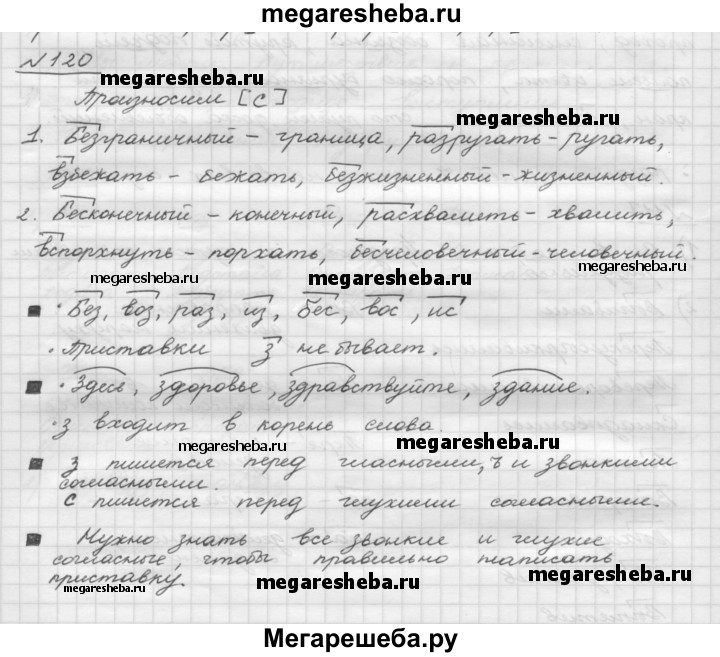 megaresheba.ru
№120
megaresheba.ru
Произносим [с]
1. Безграничный – граница, разругать – ругать,
взбежать – бежать, безжизненный – жизненный.
2. Бесконечный – конечный, расхвалить – хвалить,
вспорхнуть – порхать, бесчеловечный – человечный.
megaresheba.ru megaresheba.ru megaresheba.ru
· Без, воз, раз, из, бес, вос, ис
· Приставки з не бывает.
· Здесь, здоровье, здравствуйте, здание.
· з входит в корень слова.
megaresheba.ru megaresheba.ru
З пишется перед гласными, ъ и звонкими
согласными.
С пишется перед глухими согласными.
Нужно знать все звонкие и глухие
согласные, чтобы правильно написать
приставку.
megaresheba.ru megaresheba.ru megaresheba.ru
Мегарешеба.ру